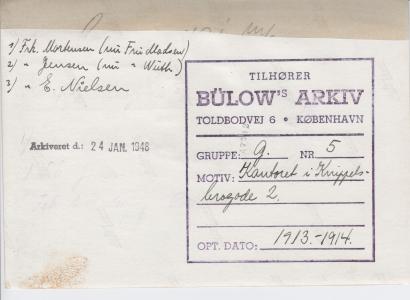 1) Frk. Mortensen (nu Fru Madsen)
2) " Jensen (nu " Wüth)
3) " E. Nielsen
Arkiveret d.: 24 JAN. 1948
TILHØRER
BÜLOW'S ARKIV
TOLDBODVEJ 6 • KØBENHAVN
GRUPPE: g. NR 5
MOTIV: Kontoret i Knippels-
brogade 2.
OPT. DATO: 1913.-1914.